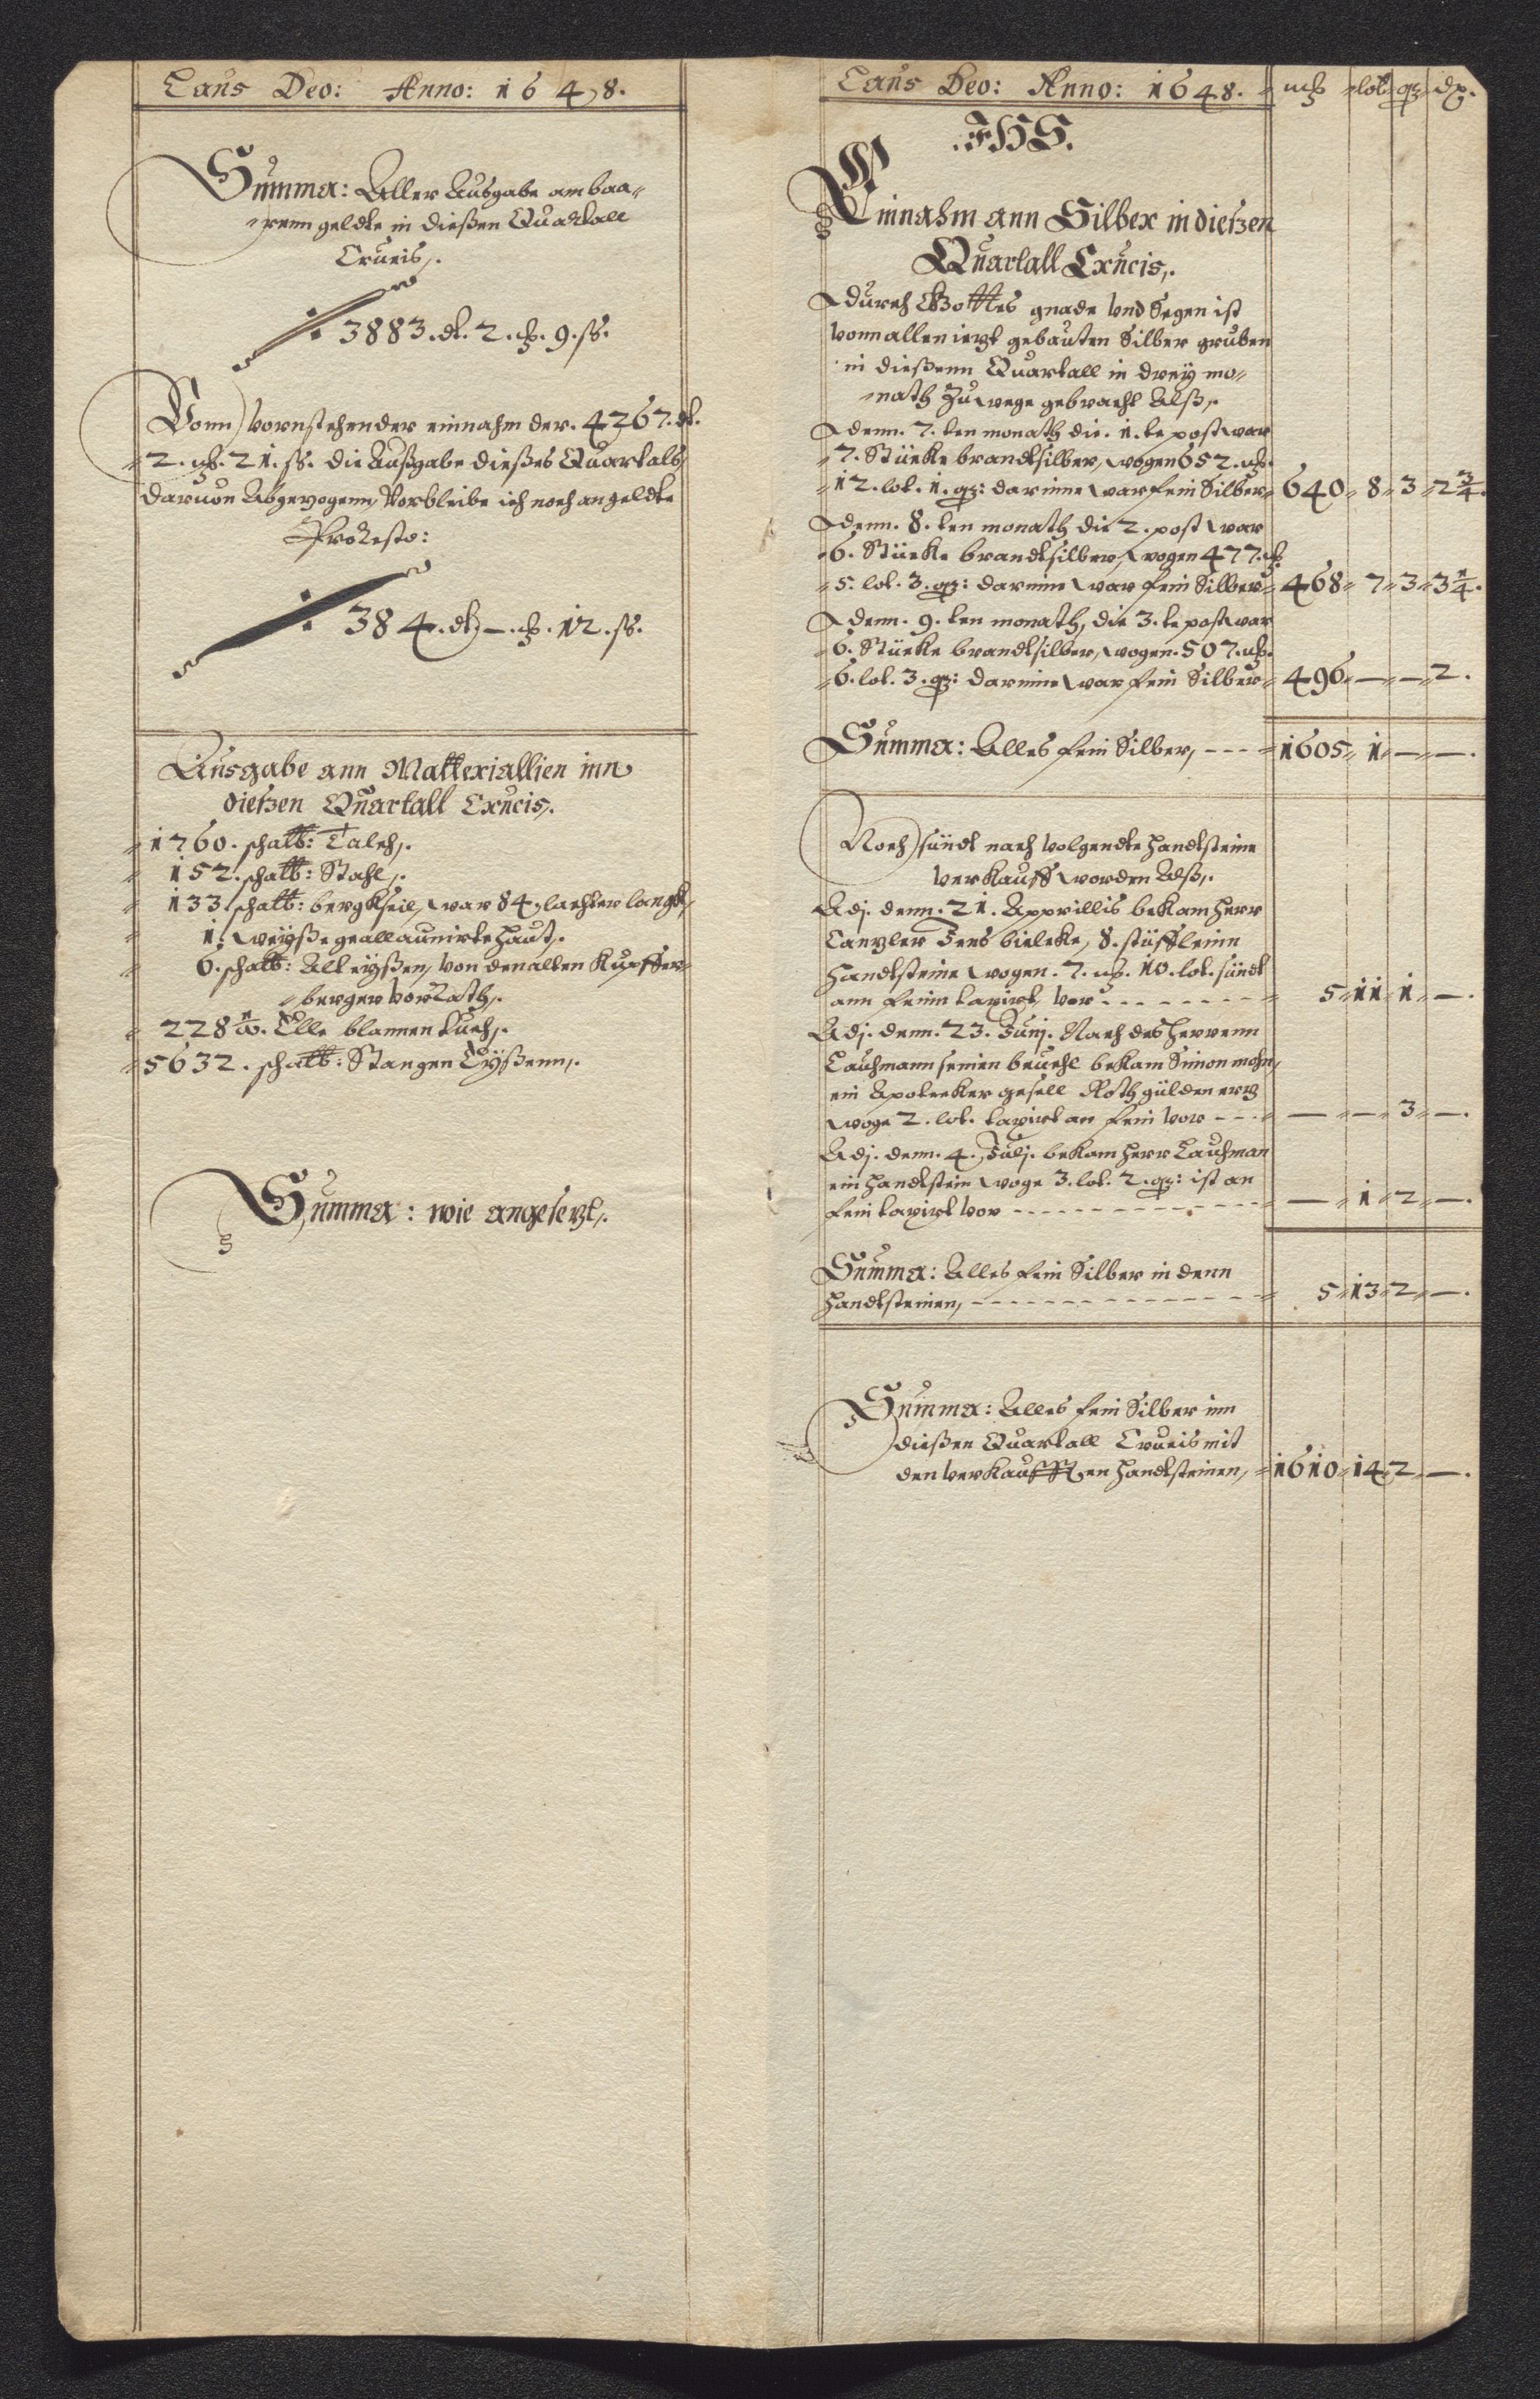 Laus Deo: Anno: 1648.
Summa: Aller Ausgabe am baa-
renn geldte in dießen Quartall
Crucis,.
3883. dl. 2. mk. 9. ß.
Vonn vornstehender einnahm der. 4267. dl.
2. mk. 21. ß. die Außgabe dießes Quartals,
daruon Abgezogenn, Verbleibe ich noch an geldte
Pro Resto:
384. dl. —. mk. 12. ß.
Ausgabe ann Matteriallien inn
dießen Quartall Crucis,.
1760. schalb: Talch,.
152. schalb: Stahl,.
133. schalb: bergkseil, war 84. lachter langk,
1. weyße geallaunirte haut,.
6. schalb: Alt eyßen, von den alten Kupffer-
berger vorRath,.
228 ½. Elle blannen tuch,.
5632. schalb: Stangen Eyßenn,.
Summa: wie angesezt,.
Laus Deo: Anno: 1648. mk lot. qz dp.
.IHS.
Einnahm ann Silber in dießen
Quartall Crucis,.
durch Gottes gnade vnd Segen ist
vonn allen iezt gebauten Silber gruben
in dießenn Quartall in drey mo-
nath Zu wege gebracht Alß,.
denn. 7. ten monath die. 1. te post war
7. Stücke brandtsilber, wogen 652. mk.
12. lot. 1. qz: darinne war fein Silber 640 8 3 2 3/4.
denn. 8. ten monath die 2. post war
6. Stücke brandtsilber, wogen 477. mk.
5. lot. 3. qz: darinne war fein Silber 468 7 3 3 1/4.
denn. 9. ten monath, die 3. te post war
6. Stücke brandtsilber, wogen. 507. mk.
6. lot. 3. qz: darinne war fein Silber 496 — — 2.
Summa: Alles fein Silber, 1605 1 — —.
Noch sündt nach volgendte handtsteine
verkaufft worden Alß,.
Adj. denn. 21. Apprillis bekam herr
Canzler Jens bielcke, 8. stüffleinn
handtsteine wogen. 7. mk. 10. lot. sündt
ann feinn taxirt, vor 5 11 1 —.
Adj. denn. 23. Junj. Nach des herrenn
Lauhmann seinen beuehl bekam Simon mohn,
ein Apotecker gesell Roth gülden erz
woge 2. lot. taxirt an fein vor — — 3 —.
Adj. denn. 4. Julj. bekam herr Lauhman
ein handtstein woge 3. lot. 2. qz: ist an
fein taxirt vor — 1 2 —.
Summa: Alles fein Silber in denn
handtsteinen, 5 13 2 —.
Summa: Alles fein Silber inn
dießen Quartall Crucis mit
den verkaufften handtsteinen, 1610 14 2 —.